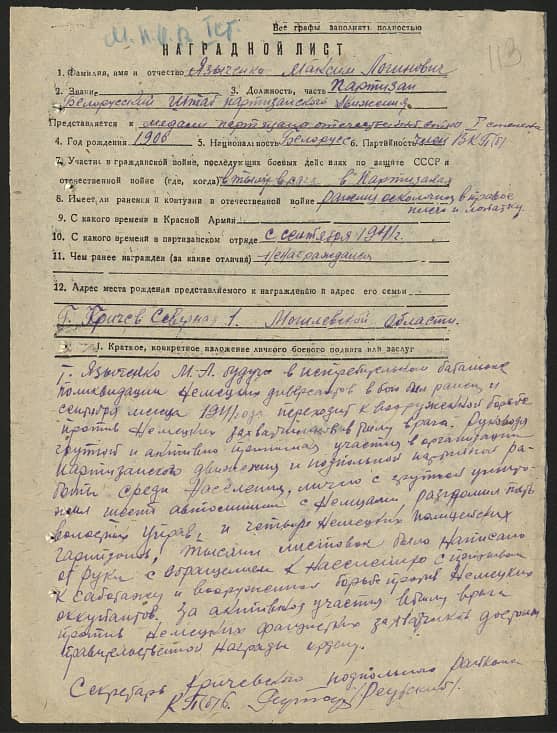 Все графы заполнять полностью
М.П.О.В. Iст
113
НАГРАДНОЙ ЛИСТ
1. Фамилия, имя и отчество Языченко Максим Логинович
2. Звание 3. Должность, часть Партизан
Белорусский Штаб партизанского движения
Представляется к медали партизана отечественной войны I степени
4. Год рождения 1906 5. Национальность Белорус 6. Партийность член ВКП(б)
7. Участия в гражданской войне, последующих боевых действиях по защите СССР и
отечественной войне (где, когда) в тылу врага в партизанах
8. Имеет ли ранения и контузии в отечественной войне ранен осколочно в правое
плечо и лопатку.
9. С какого времени в Красной Армии
10. С какого времени в партизанском отряде с сентября 1941 г.
11. Чем ранее награжден (за какие отличия) Не награждался
12. Адрес места рождения представляемого к награждению и адрес его семьи
Г. Кричев Северная 1. Могилевской области.
1. Краткое, конкретное изложение личного боевого подвига или заслуг
Т. Языченко М.Л. будучи в истребительном батальоне
по ликвидации Немецких диверсантов в бою был ранен, и
сентября месяца 1941 года переходит к вооруженной борьбе
против Немецких захватчиков в тылу врага. Руководя
группой и активно принимая участия в организации
партизанского движения и подпольной партийной ра-
боты среди населения, лично с группой уничто-
жил шесть автомашин с Немцами, разгромил пять
волостных управ, и четыре Немецких полицейских
гарнизонов, тысячи листовок было написано
от руки с обращением к населению с призывом
к саботажу и вооруженной борьбе против Немецких
оккупантов. За активное участия в тылу врага
против Немецких фашистских захватчиков достоин
правительственной награды ордену.
Секретарь Кричевского подпольного райкома
КП(б)Б.